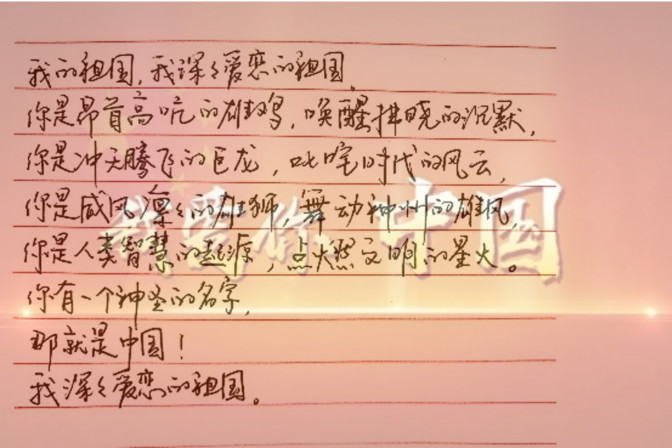 我的祖国，我深々爱恋的祖国，
你是昂首高吭的雄鸡，唤醒拂晓的沉默，
你是冲天腾飞的巨龙，叱咤时代的风云，
你是威风凛々的雄狮，舞动神州的雄风，
你是人类智慧的起源，点燃文明的星火。
你有一个神圣的名字，
那就是中国！
我深々爱恋的祖国。
我爱你 中国